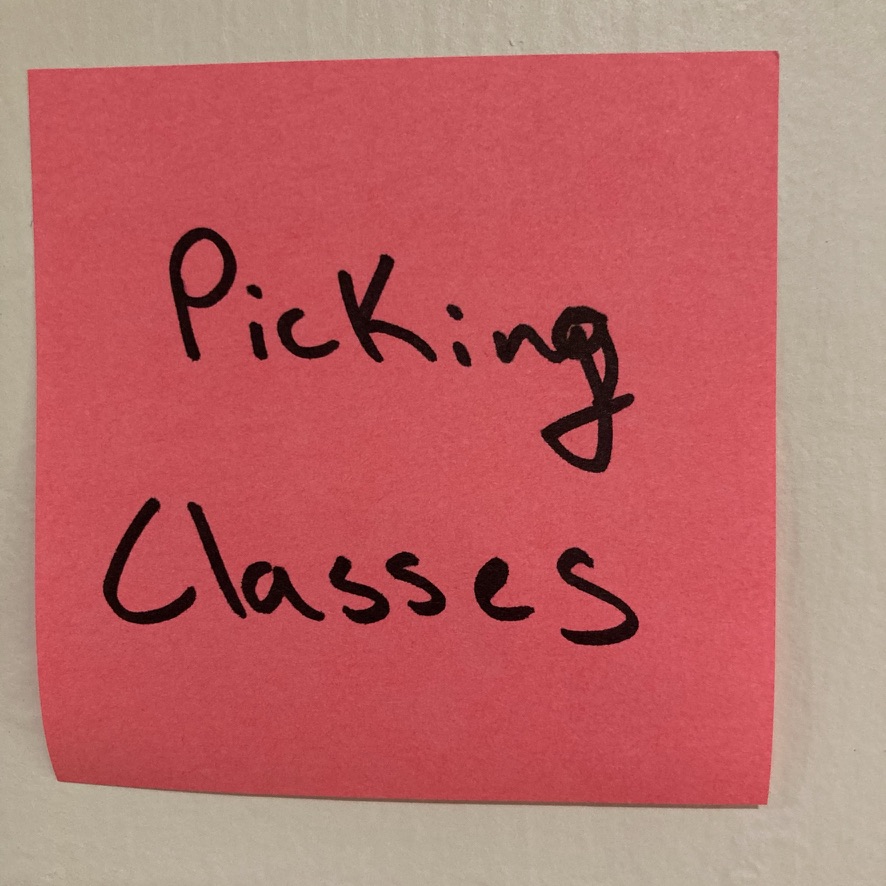 Picking
Classes